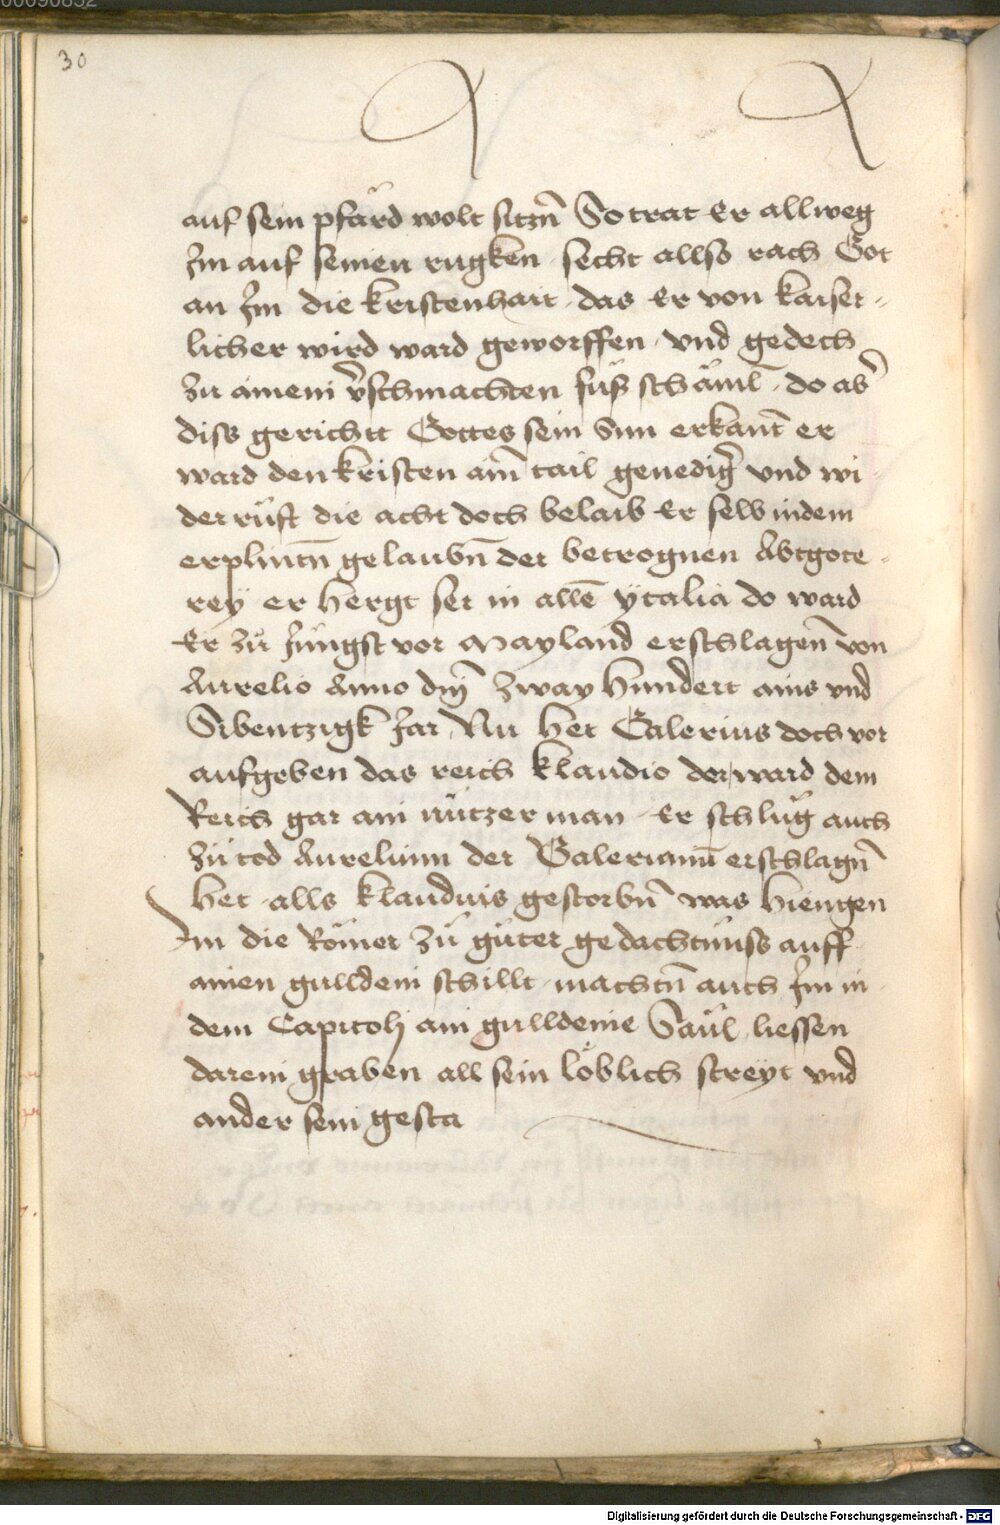 00090852
30
auf sein pfärd wolt sitzn̄ So trat Er allweg
Im auf seinen rugken · secht allso rach Got
an Im die kristenhait · das Er von kaiser-
licher wird ward geworffen · vnd gedech
zu ainem v̄schmachten fůß schäml̄ · do ab̄
diss gerichtt Gottes sein Sun erkant̄ er
ward den kristen aim̄ tail genediḡ vnd wi-
derrůft die acht doch belaib Er selb indem
erplintn̄ gelaubn̄ der betrognen Abtgote-
rey er hergt ser in allē ytalia do ward
Er zů Jüngst vor Mayland erschlagen̄ von
Aurelio Anno dn̄j zway hundert ains vnd
Sibentzigk Jar Nu het Galerius doch vor
aufgeben das reich klaudio der ward dem
Reich gar ain nützer man Er schlůg auch
zů tod Aurelium der Galerianū erschlagn̄
het · alls klaudius gestorbn̄ was hiengen
Im die Römer zů gůter gedachtnuss auff
ainen gulldein schillt · machtn̄ auch Im in
dem Capitolj ain gulldeine Saül liessen
darein graben all sein löblich streyt vnd
ander sein gesta
Digitalisierung gefördert durch die Deutsche Forschungsgemeinschaft - DFG